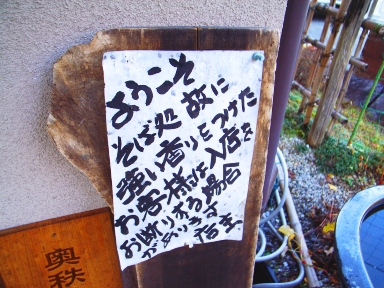 ようこそ
そば処 故に
強い香りをつけた
お客様は入店を
お断りする場合
があります
店主
奥秩